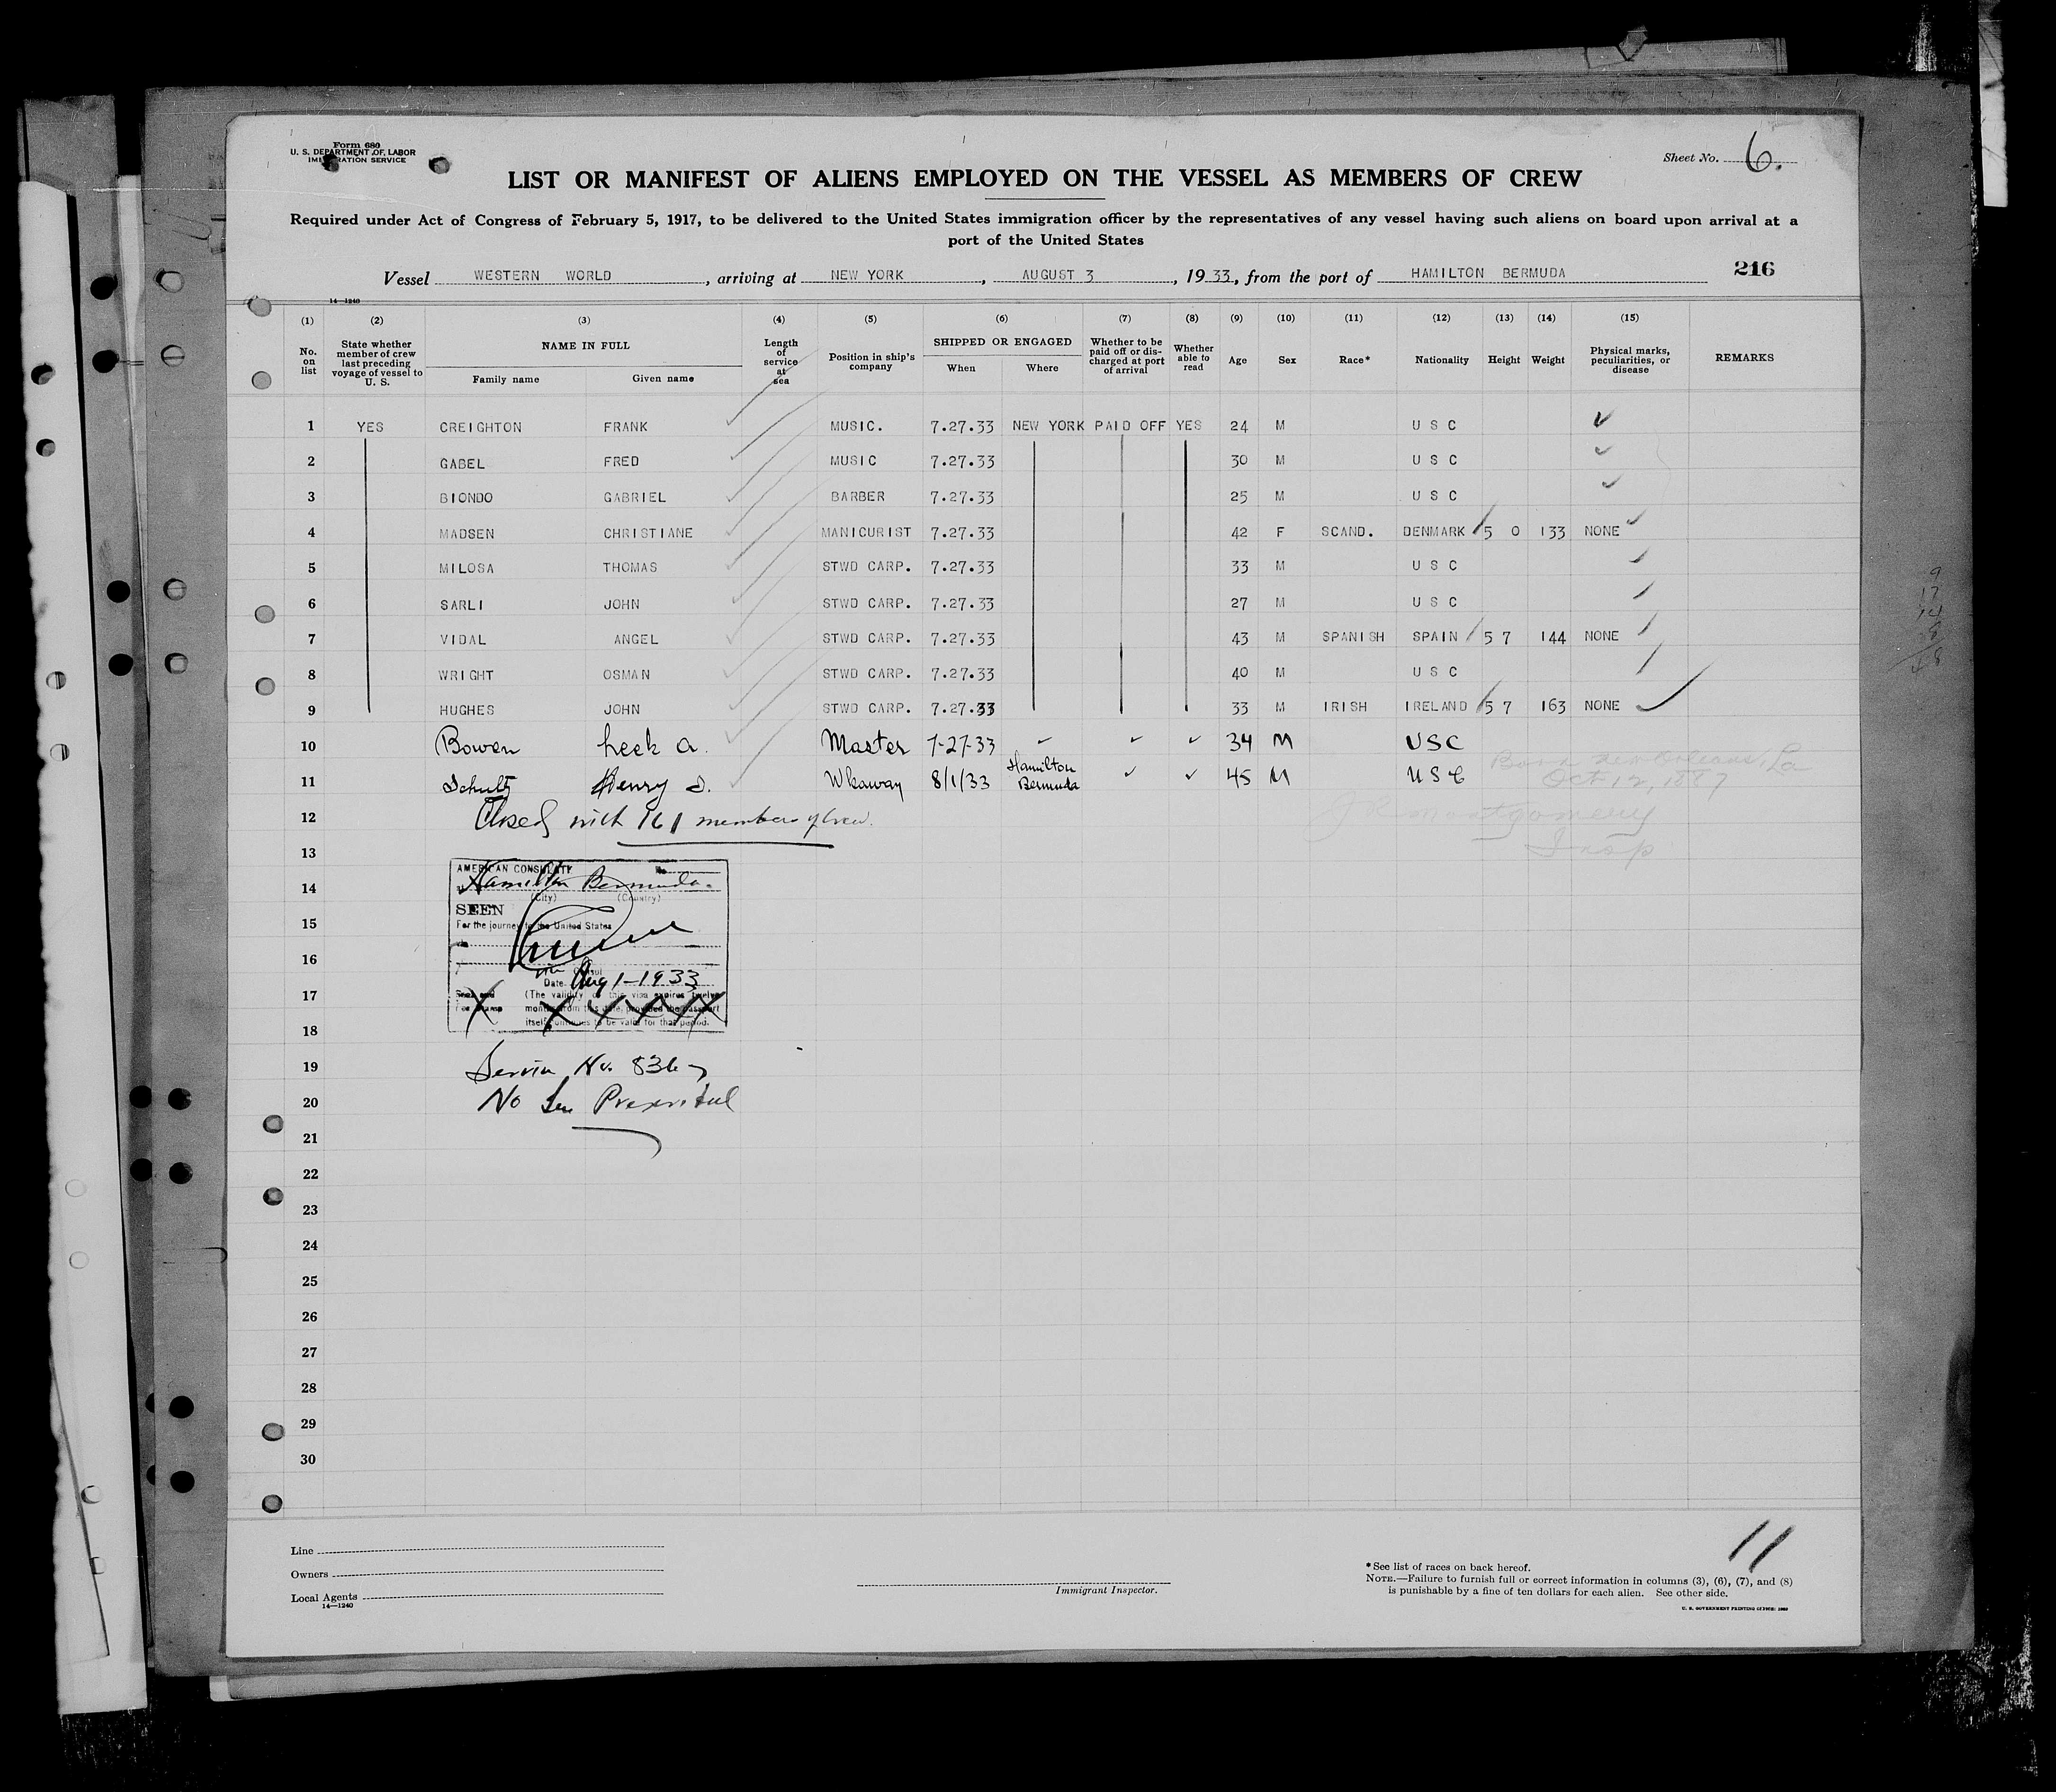 Form 680
U. S. DEPARTMENT OF LABOR
IMMIGRATION SERVICE
Sheet No. 6.
LIST OR MANIFEST OF ALIENS EMPLOYED ON THE VESSEL AS MEMBERS OF CREW
Required under Act of Congress of February 5, 1917, to be delivered to the United States immigration officer by the representatives of any vessel having such aliens on board upon arrival at a
port of the United States
Vessel WESTERN WORLD, arriving at NEW YORK, AUGUST 3, 1933, from the port of HAMILTON BERMUDA 216
14—1240
(1) (2) (3) (4) (5) (6) (7) (8) (9) (10) (11) (12) (13) (14) (15)
No. on list State whether member of crew last preceding voyage of vessel to U. S. NAME IN FULL Family name Given name Length of service at sea Position in ship's company SHIPPED OR ENGAGED When Where Whether to be paid off or discharged at port of arrival Whether able to read Age Sex Race* Nationality Height Weight Physical marks, peculiarities, or disease REMARKS
1 YES CREIGHTON FRANK MUSIC. 7.27.33 NEW YORK PAID OFF YES 24 M U S C
2 GABEL FRED MUSIC 7.27.33 30 M U S C
3 BIONDO GABRIEL BARBER 7.27.33 25 M U S C
4 MADSEN CHRISTIANE MANICURIST 7.27.33 42 F SCAND. DENMARK 5 0 133 NONE
5 MILOSA THOMAS STWD CARP. 7.27.33 33 M U S C
6 SARLI JOHN STWD CARP. 7.27.33 27 M U S C
7 VIDAL ANGEL STWD CARP. 7.27.33 43 M SPANISH SPAIN 5 7 144 NONE
8 WRIGHT OSMAN STWD CARP. 7.27.33 40 M U S C
9 HUGHES JOHN STWD CARP. 7.27.33 33 M IRISH IRELAND 5 7 163 NONE
10 Bowen a. Master 7-27-33 34 M USC
11 Schultz Henry Wkaway 8/1/33 Hamilton Bermuda 45 M USC Born New Orleans, La
Oct 12, 1887
12 Closed with 161 members of crew.
Montgomery
13 Insp
AMERICAN CONSULATE No
14 at Hamilton Bermuda.
(City) (Country)
SEEN
15 For the journey to the United States
16
Consul
Date Aug 1-1933
17 Seal and (The validity of this visa expires twelve
Fee Stamp months from this date, provided the passport
itself continues to be valid for that period.
18
19 Service No. 836
20 No fee Prescribed
21
22
23
24
25
26
27
28
29
30
11
Line
Owners
Local Agents
14—1240
Immigrant Inspector.
*See list of races on back hereof.
NOTE.—Failure to furnish full or correct information in columns (3), (6), (7), and (8)
is punishable by a fine of ten dollars for each alien. See other side.